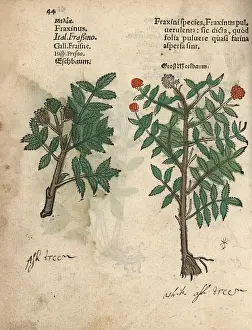 44
Fraxinus,
Ital. Frassino.
Gall. Fraisne.
Hisp. Fresno.
Eschbaum.
Fraxini species, Fraxinus pul
uerulenta: sic dicta, quòd
folia puluere quasi farina
aspersa sint.
Ash treen
white ash treen